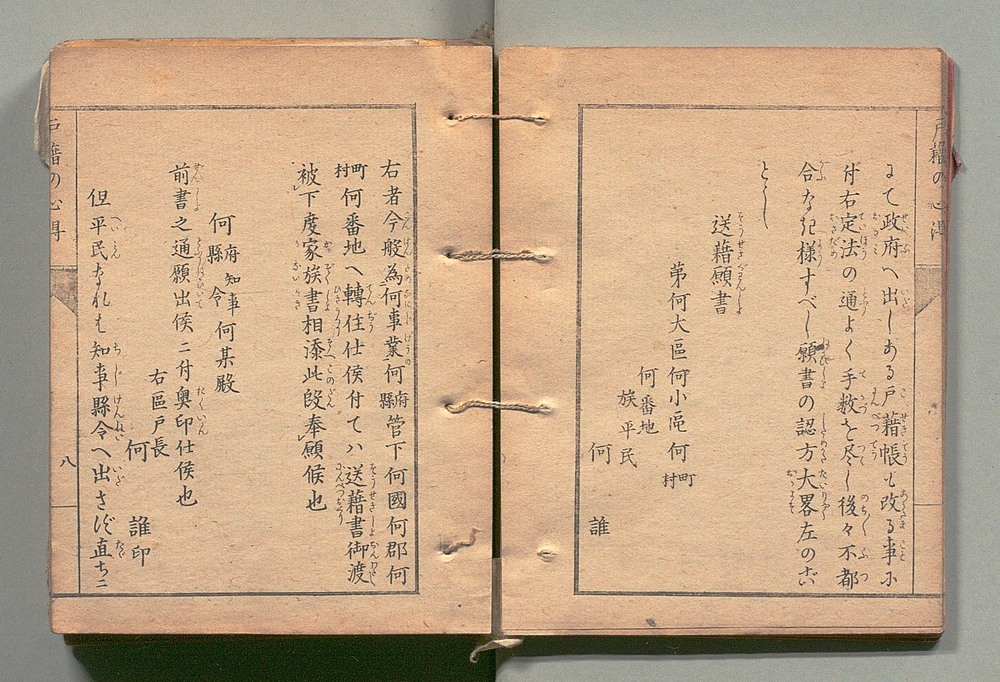 戸籍の心得
にて政府へ出しある戸籍帳も改る事に
付右定法の通よく手数を尽し後々不都
合なき様すべし願書の認方大畧左の如
とし
送籍願書
第何大區何小區何町村
何番地
族平民
何誰
右者今般為何事業何府縣管下何國何郡何
町村何番地へ轉住仕候付てハ送籍書御渡
被下度家族書相添此段奉願候也
何府縣知事令何某殿
前書之通願出候ニ付奥印仕候也
右區戸長
何誰印
但平民なれは知事縣令へ出さず直ちニ
戸籍の心得
八